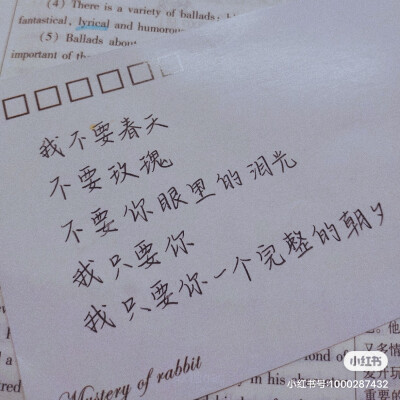 (4) There is a variety of ballads:
fantastical, lyrical and humorous
(5) Ballads about
important of the
我不要春天
不要玫瑰
不要你眼里的泪光
我只要你
我只要你一个完整的朝夕
Mystery of rabbit
ond of
in his
小红书
小红书号:1000287432
又多情
发开玩
重要的